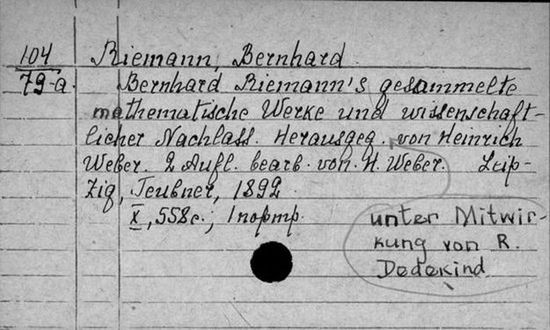 104 Riemann, Bernhard
79-a. Bernhard Riemann's gesammelte
mathematische Werke und wissenschaft-
licher Nachlass. Herausgeg. von Heinrich
Weber. 2 Aufl. bearb. von. H. Weber. Leip-
zig, Teubner, 1892.
X, 558c.; 1 порmp.
unter Mitwir-
kung von R.
Dedekind